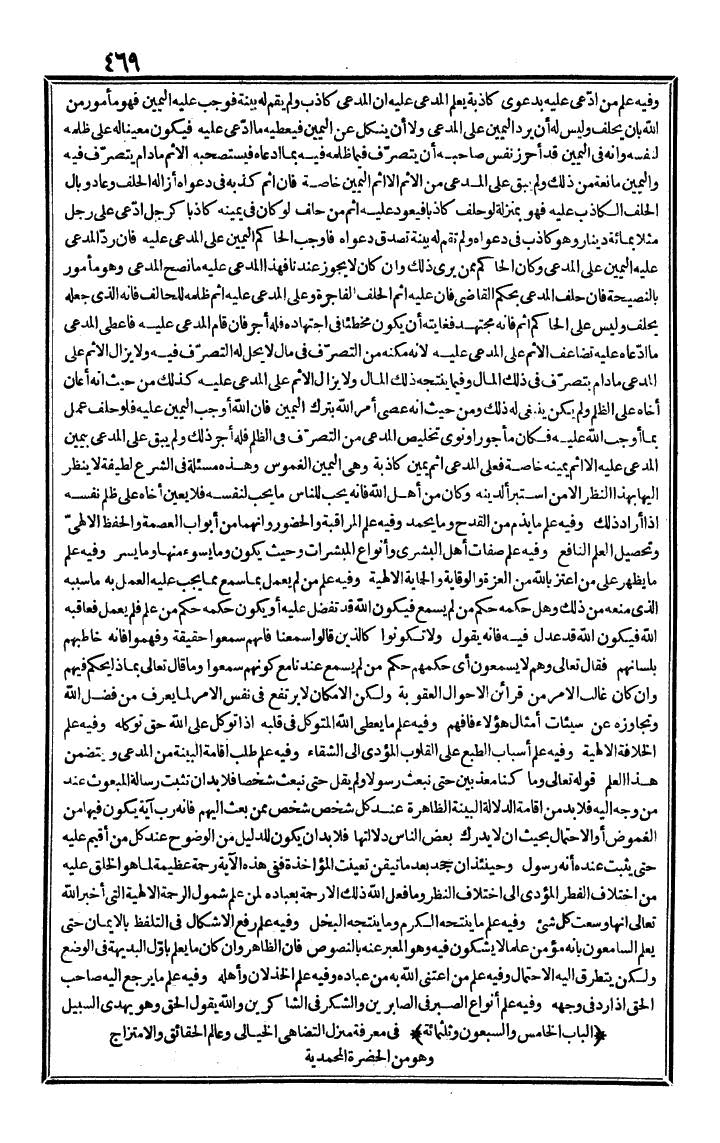 ٤٦٩
وفيه علم من ادّعى عليه بدعوى كاذبة يعلم المدعى عليه ان المدعى كاذب ولم يقم له بينة فوجب عليه اليمين فهو مأمور من
الله بان يحلف وليس له أن يرد اليمين على المدعى ولا أن ينكل عن اليمين فيعطيه ما ادّعى عليه فيكون معينا له على ظلمه
لنفسه وانه فى اليمين قد أحرز نفس صاحبه أن يتصرّف فيما ظلمه فيه بما ادعاه فيستصحبه الاثم مادام يتصرّف فيه
واليمين مانعة من ذلك ولم يبق على المدعى من الاثم الا اثم اليمين خاصة فان اثم كذبه فى دعواه أزاله الحلف وعاد وبال
الحلف الكاذب عليه فهو بمنزلة لو حلف كاذبا فيعود عليه اثم من حلف لو كان فى يمينه كاذبا كرجل ادّعى على رجل
مثلا بمائة دينار وهو كاذب فى دعواه ولم تقم له بينة تصدق دعواه فاوجب الحاكم اليمين على المدعى عليه فان ردّ المدعى
عليه اليمين على المدعى وكان الحاكم ممن يرى ذلك وان كان لا يجوز عندنا فهذا المدعى عليه ما نصح المدعى وهو مأمور
بالنصيحة فان حلف المدعى بحكم القاضى فان عليه اثم الحلف الفاجرة وعلى المدعى عليه اثم ظلمه للحالف فانه الذى جعله
يحلف وليس على الحاكم اثم فانه مجتهد فغايته أن يكون مخطئا فى اجتهاده فله أجر فان قام المدعى عليه فاعطى المدعى
ما ادّعاه عليه تضاعف الاثم على المدعى عليه لانه مكنه من التصرّف فى مال لا يحل له التصرّف فيه ولا يزال الاثم على
المدعى مادام يتصرّف فى ذلك المال وفيما ينتجه ذلك المال ولا يزال الاثم على المدعى عليه كذلك من حيث انه أعان
أخاه على الظلم ولم يكن ينبغى له ذلك ومن حيث انه عصى أمر الله بترك اليمين فان الله أوجب اليمين عليه فلو حلف عمل
بما أوجب الله عليه فكان مأجورا ونوى تخليص المدعى من التصرّف فى الظلم فله أجر ذلك ولم يبق على المدعى بيمين
المدعى عليه الا اثم يمينه خاصة فعلى المدعى اثم يمين كاذبة وهى اليمين الغموس وهذه مسئلة فى الشرع لطيفة لا ينظر
اليها بهذا النظر الا من استبرأ لدينه وكان من أهل الله فانه يحب للناس ما يحب لنفسه فلا يعين أخاه على ظلم نفسه
اذا أراد ذلك وفيه علم ما يذم من القدح وما يحمد وفيه علم المراقبة والحضور وانهما من أبواب العصمة والحفظ الالهىّ
وتحصيل العلم النافع وفيه علم صفات أهل البشرى وأنواع المبشرات وحيث يكون وما يسوء منها وما يسر وفيه علم
ما يظهر على من اعتز بالله من العزة والوقاية والحماية الالهية وفيه علم من لم يعمل بما سمع مما يجب عليه العمل به ما سببه
الذى منعه من ذلك وهل حكمه حكم من لم يسمع فيكون الله قد تفضل عليه أو يكون حكمه حكم من علم فلم يعمل فعاقبه
الله فيكون الله قد عدل فيه فانه يقول ولا تكونوا كالذين قالوا سمعنا فانهم سمعوا حقيقة وفهموا فانه خاطبهم
بلسانهم فقال تعالى وهم لا يسمعون أى حكمهم حكم من لم يسمع عندنا مع كونهم سمعوا وما قال تعالى بماذا يحكم فيهم
وان كان غالب الامر من قرائن الاحوال العقوبة ولكن الامكان لا يرتفع فى نفس الامر لما يعرف من فضل الله
وتجاوزه عن سيئات أمثال هؤلاء فافهم وفيه علم ما يعطى الله المتوكل فى قلبه اذا توكل على الله حق توكله وفيه علم
الخلافة الالهية وفيه علم أسباب الطبع على القلوب المؤدى الى الشقاء وفيه علم طلب اقامة البينة من المدعى ويتضمن
هذا العلم قوله تعالى وما كنا معذبين حتى نبعث رسولا ولم يقل حتى نبعث شخصا فلا بد ان تثبت رسالة المبعوث عند
من وجه اليه فلا بد من اقامة الدلالة البينة الظاهرة عند كل شخص شخص ممن بعث اليهم فانه رب آية يكون فيها من
الغموض أو الاحتمال بحيث ان لا يدرك بعض الناس دلالتها فلا بد ان يكون للدليل من الوضوح عند كل من أقيم عليه
حتى يثبت عنده أنه رسول وحينئذ ان جحد بعد ما تيقن تعينت المؤاخذة ففى هذه الآية رحمة عظيمة لما هو الخلق عليه
من اختلاف الفطر المؤدى الى اختلاف النظر وما فعل الله ذلك الا رحمة بعباده لمن علم شمول الرحمة الالهية التى أخبر الله
تعالى انها وسعت كل شئ وفيه علم ما ينتجه الكرم وما ينتجه البخل وفيه علم رفع الاشكال فى التلفظ بالايمان حتى
يعلم السامعون بانه مؤمن علما لا يشكون فيه وهو المعبر عنه بالنصوص فان الظاهر وان كان ما يعلم باوّل البديهة فى الوضع
ولكن يتطرق اليه الاحتمال وفيه علم من اعتنى الله به من عباده وفيه علم الخذلان وأهله وفيه علم ما يرجع اليه صاحب
الحق اذا رد فى وجهه وفيه علم أنواع الصبر فى الصابرين والشكر فى الشاكرين والله يقول الحق وهو يهدى السبيل
﴿الباب الخامس والسبعون وثلثمائة﴾ فى معرفة منزل التضاهى الخيالى وعالم الحقائق والامتزاج
وهو من الحضرة المحمدية